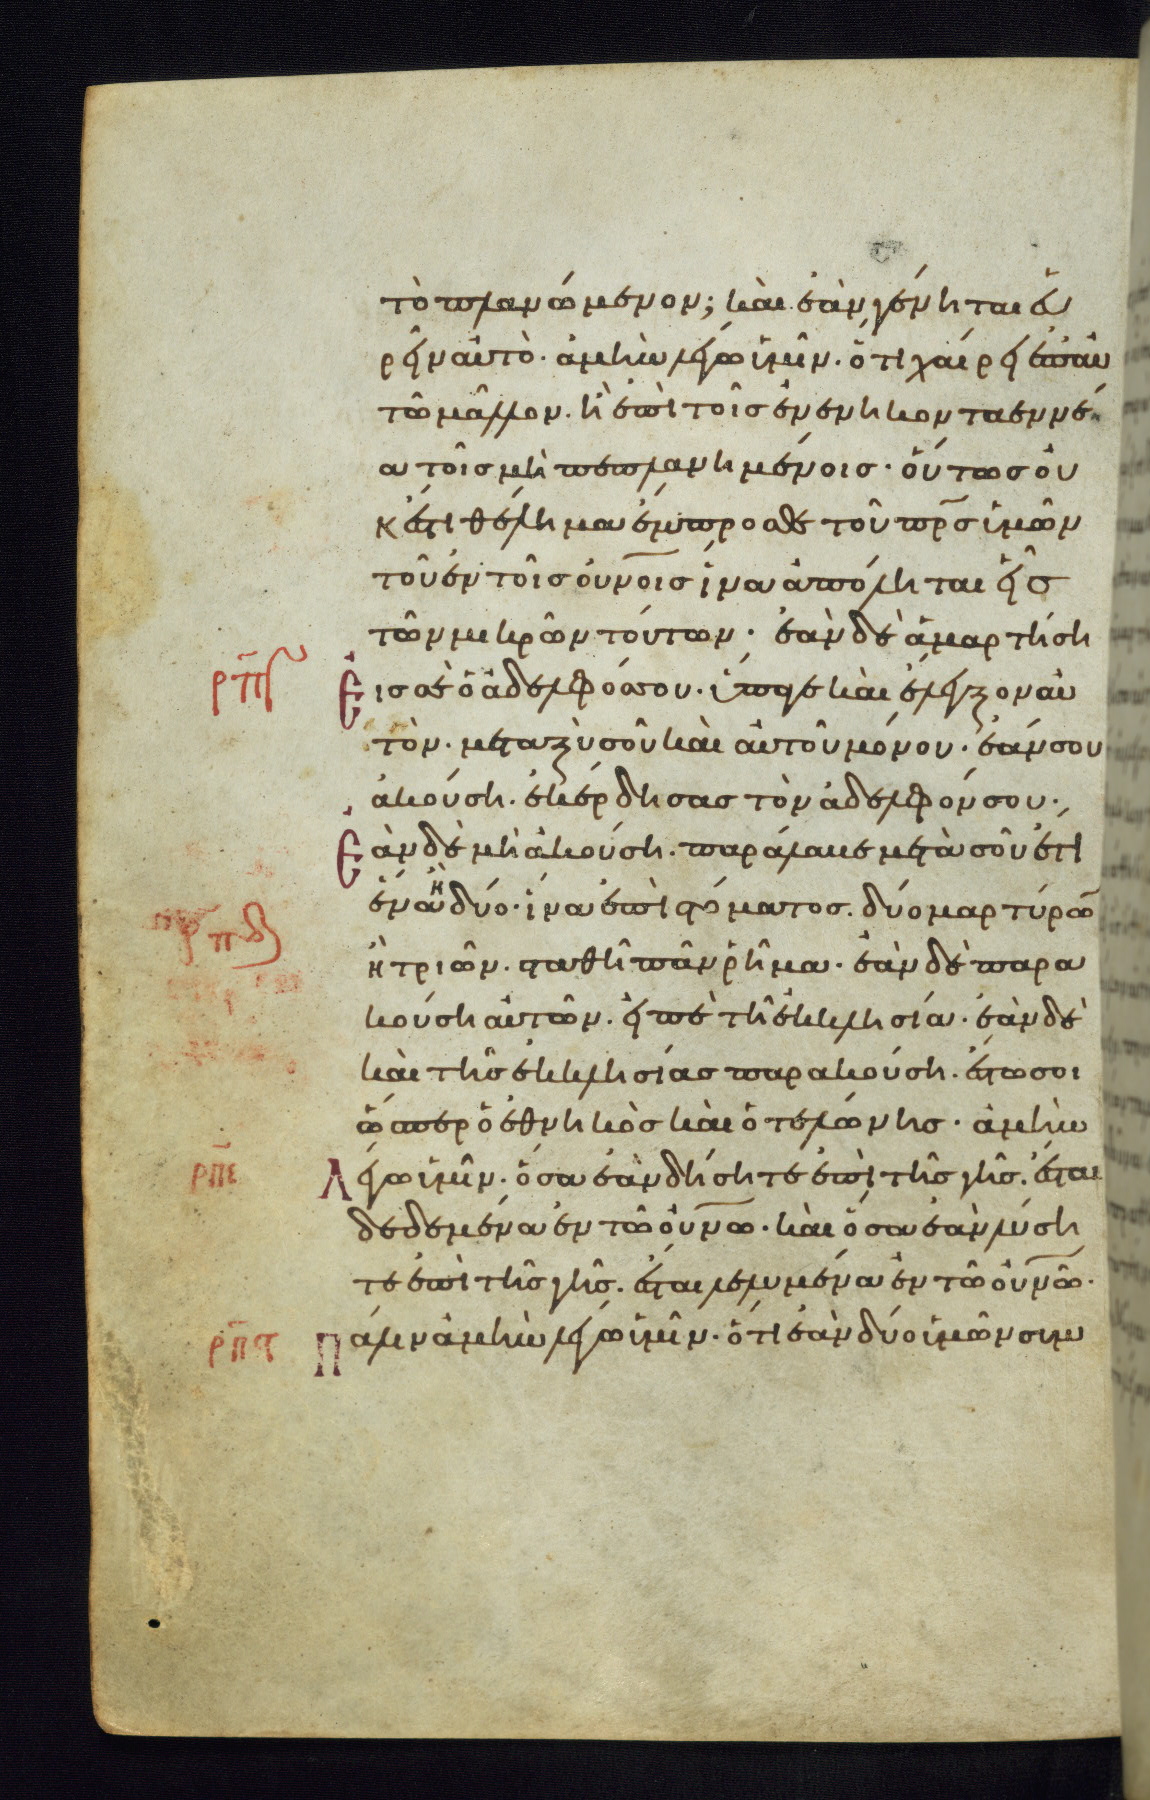 τὸ πλανώμενον; καὶ ἐὰν γένηται εὑ
ρεῖν αὐτὸ· ἀμὴν λέγω ὑμῖν· ὅτι χαίρει ἐπ' αὐ
τῶ μᾶλλον· ἢ ἐπὶ τοῖς ἐνενηκονταεννέ
α τοῖς μὴ πεπλανημένοις· οὕτως οὐ
κ ἔστι θέλημα ἔμπροσθε τοῦ πρ̅ς ὑμῶν
τοῦ ἐν τοῖς οὐν̅οις ἵνα ἀπόληται εἷς
τῶν μικρῶν τούτων· ἐὰν δὲ ἁμαρτήση
ρπ̅γ Εἰς σὲ ὁ ἀδελφός σου· ὕπαγε καὶ ἔλεγξον αὐ
τὸν· μεταξὺ σοῦ καὶ αὐτοῦ μόνου· ἐάν σου
ἀκούση· ἐκέρδησας τὸν ἀδελφόν σου·
Ἐὰν δὲ μὴ ἀκούση· παράλαβε μετὰ σοῦ ἔτι
ἕνα ἢ δύο· ἵνα ἐπὶ στόματος· δύο μαρτύρω̅
ρπ̅δ ἢ τριῶν· σταθῆ πᾶν ῥῆμα· ἐὰν δὲ παρα
κούση αὐτῶν· εἰπὲ τῆ ἐκκλησία· ἐὰν δὲ
καὶ τῆς ἐκκλησίας παρακούση· ἔστω σοι
ὥσπερ ὁ ἐθνηκὸς καὶ ὁ τελώνης· ἀμὴν
ρπ̅ε Λέγω ὑμῖν· ὅσα ἐὰν δήσητε ἐπὶ τῆς γῆς· ἔσται
δεδεμένα ἐν τῶ οὐν̅ω· καὶ ὅσα ἐὰν λύση
τε ἐπὶ τῆς γῆς· ἔσται λελυμένα ἐν τῶ οὐν̅ῶ·
ρπ̅ϛ Πάλιν ἀμὴν λέγω ὑμῖν· ὅτι ἐὰν δύο ὑμῶν συμ